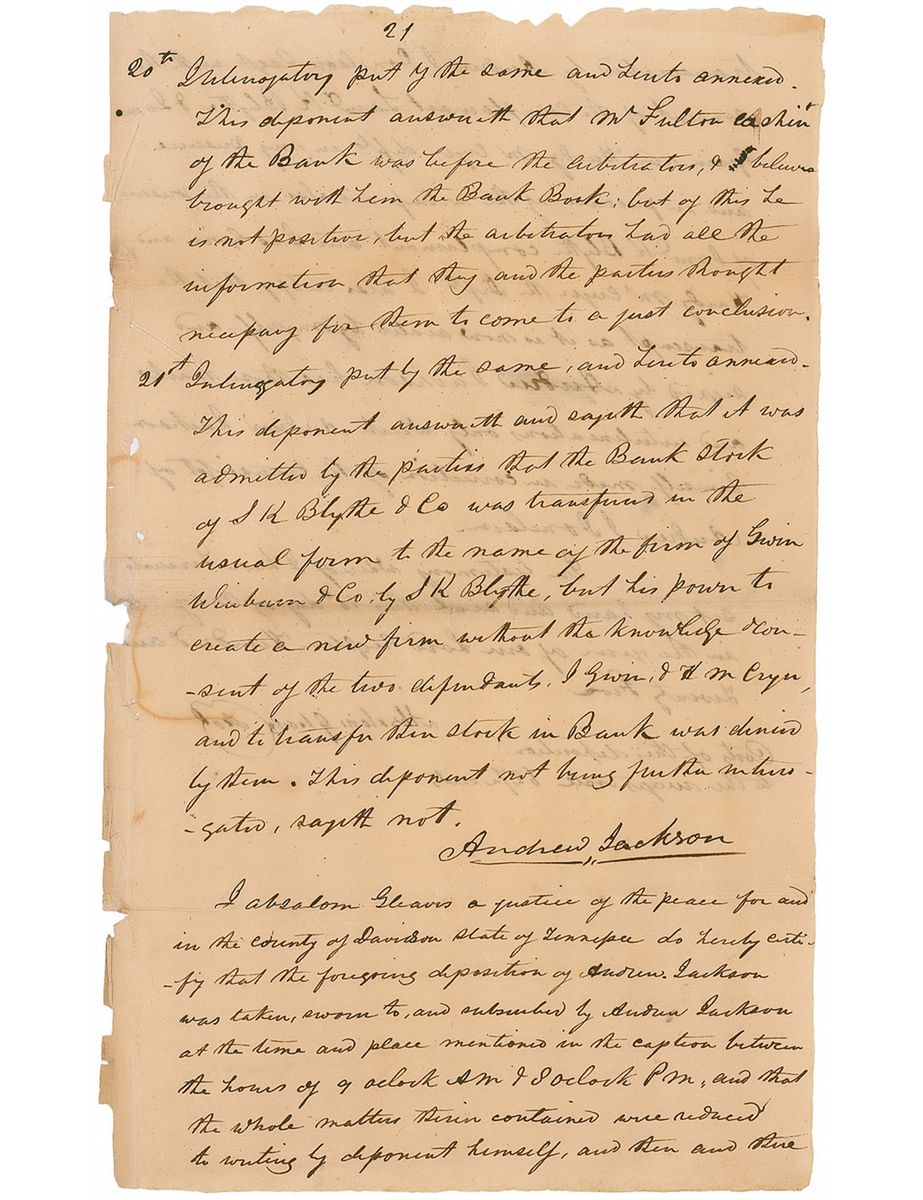 21
20th Interrogatory put by the same and hereto annexed.
This deponent answereth that Mr Fulton cashier
of the Bank was before the arbitrators, & believes
brought with him the Bank Book; but of this he
is not positive, but the arbitrators had all the
information that they and the parties thought
necessary for them to come to a just conclusion.
21st Interrogatory put by the same, and hereto annexed.
This deponent answereth and sayeth that it was
admitted by the parties that the Bank stock
of S K Blythe & Co was transfered in the
usual form to the name of the firm of Gwin
Winburn & Co, by S K Blythe, but his power to
create a new firm without the knowledge & con-
-sent of the two defendants, J Gwin, & H m Cryer,
and to transfer their stock in Bank was denied
by them. This deponent not being further interro-
-gated, sayeth not.
Andrew Jackson
I absalom Gleaves a justice of the peace for and
in the county of Davidson state of Tennessee do hereby certi-
-fy that the foregoing deposition of Andrew Jackson
was taken, sworn to, and subscribed by Andrew Jackson
at the time and place mentioned in the caption between
the hours of 9 oclock AM & 8 oclock Pm, and that
the whole matters therein contained were reduced
to writing by deponent himself, and then and there